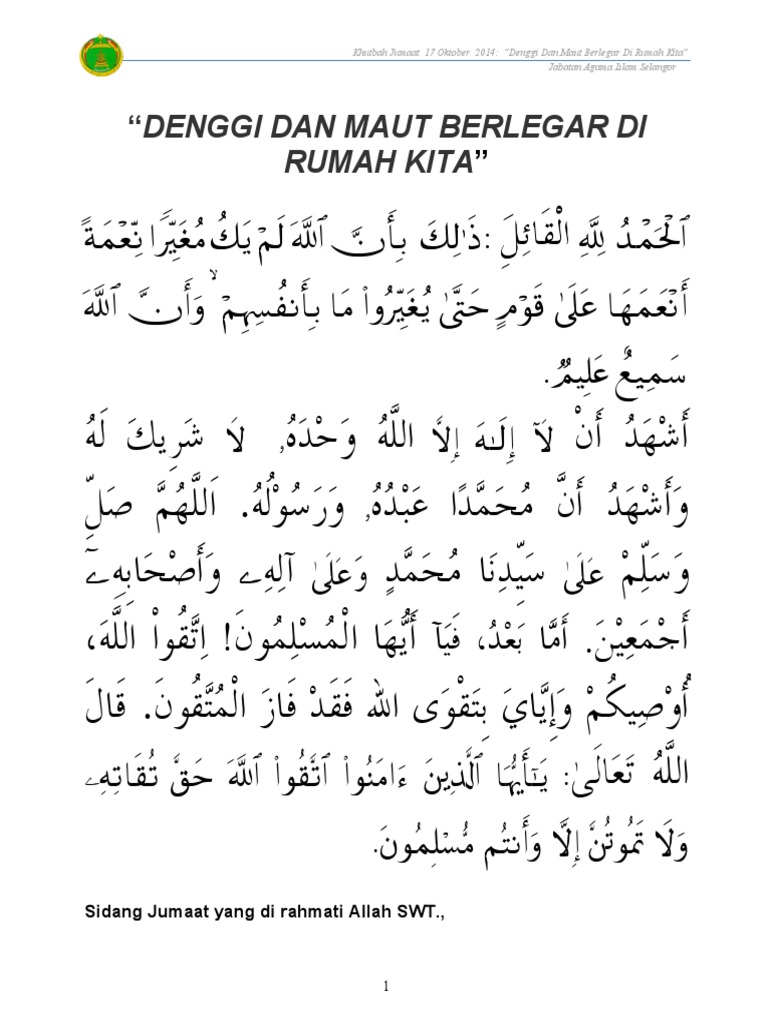 Khutbah Jumaat 17 Oktober 2014: "Denggi Dan Maut Berlegar Di Rumah Kita"
Jabatan Agama Islam Selangor
“DENGGI DAN MAUT BERLEGAR DI
RUMAH KITA”
ٱلْحَمْدُ لِلَّهِ الْقَائِلِ: ذَٰلِكَ بِأَنَّ ٱللَّهَ لَمْ يَكُ مُغَيِّرًا نِّعْمَةً
أَنْعَمَهَا عَلَىٰ قَوْمٍ حَتَّىٰ يُغَيِّرُوا۟ مَا بِأَنفُسِهِمْ ۙ وَأَنَّ ٱللَّهَ
سَمِيعٌ عَلِيمٌ.
أَشْهَدُ أَنْ لَآ إِلَـٰهَ إِلاَّ اللَّهُ وَحْدَهُ, لاَ شَرِيكَ لَهُ
وَأَشْهَدُ أَنَّ مُحَمَّدًا عَبْدُهُ, وَرَسُوْلُهُ. اَللَّهُمَّ صَلِّ
وَسَلِّمْ عَلَىٰ سَيِّدِنَا مُحَمَّدٍ وَعَلَىٰ آلِهِۦ وَأَصْحَابِهِۦٓ
أَجْمَعِيْنَ. أَمَّا بَعْدُ، فَيَآ أَيُّهَا الْمُسْلِمُونَ! اِتَّقُوا۟ اللَّهَ،
أُوْصِيكُمْ وَإِيَّايَ بِتَقْوَى الله فَقَدْ فَازَ الْمُتَّقُونَ. قَالَ
اللَّهُ تَعَالَىٰ: يَـٰٓأَيُّهَا ٱلَّذِينَ ءَامَنُوا۟ ٱتَّقُوا۟ ٱللَّهَ حَقَّ تُقَاتِهِۦ
وَلَا تَمُوتُنَّ إِلَّا وَأَنتُم مُّسْلِمُونَ.
Sidang Jumaat yang di rahmati Allah SWT.,
1